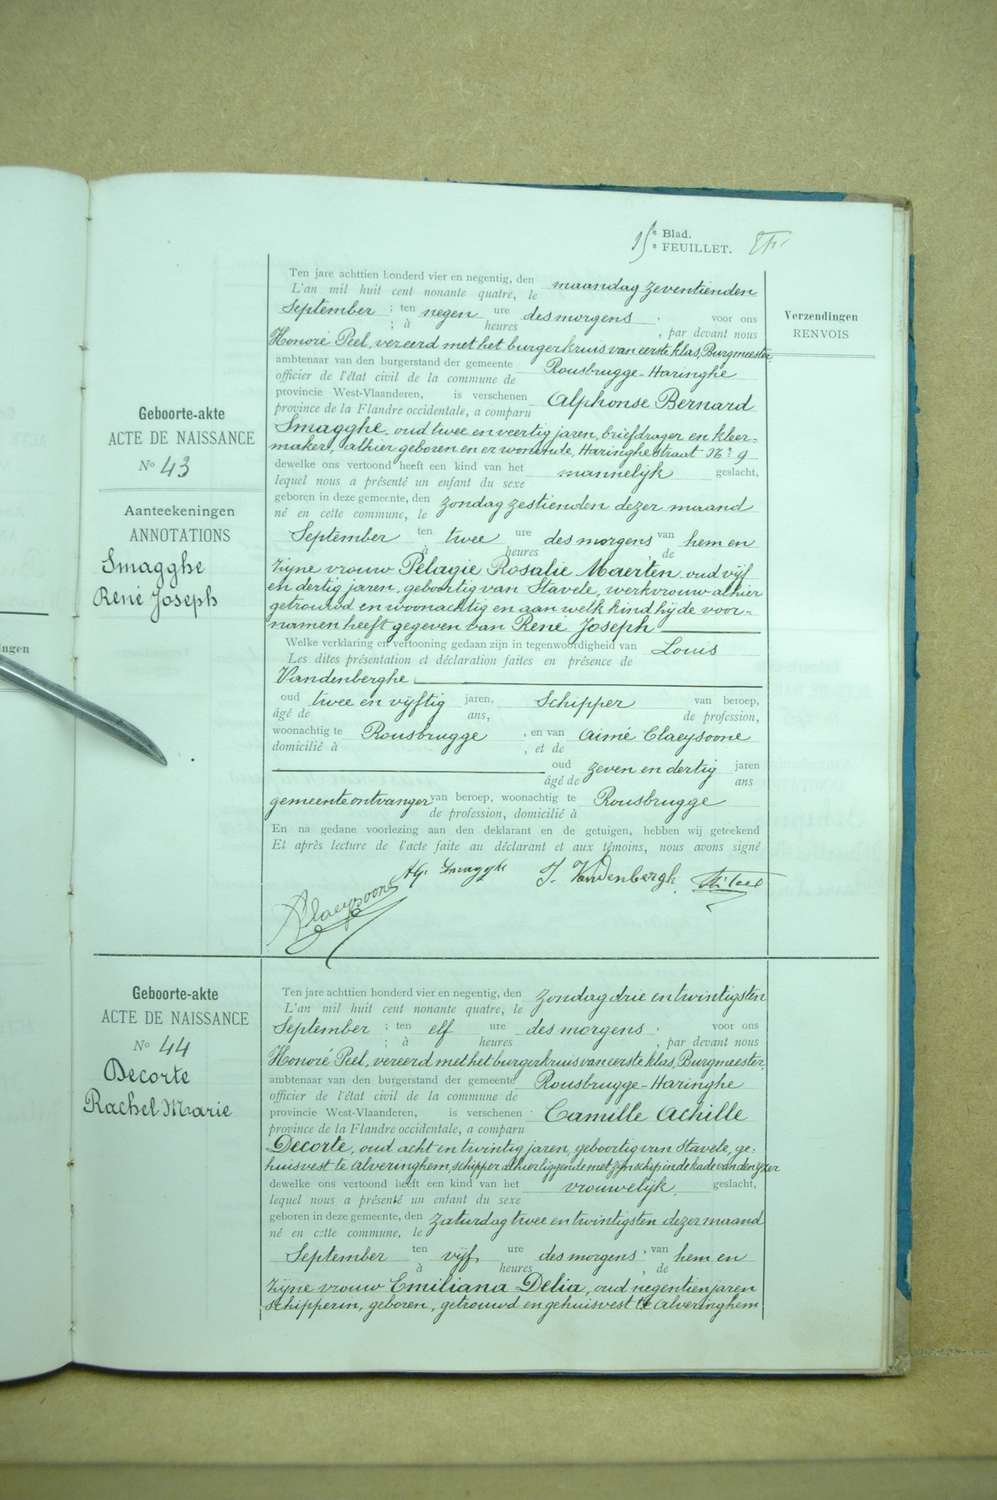 15e Blad.
e FEUILLET.
Ten jare achttien honderd vier en negentig, den maandag zeventienden
L'an mil huit cent nonante quatre, le
September ; ten negen ure des morgens ; voor ons
; à heures , par devant nous
Honoré Peel, vereerd met het burgerkruis van eerste klas, Burgmeester
ambtenaar van den burgerstand der gemeente Rousbrugge-Haringhe
officier de l'état civil de la commune de
provincie West-Vlaanderen, is verschenen Alphonse Bernard
province de la Flandre occidentale, a comparu
Smagghe, oud twee en veertig jaren, briefdrager en kleer-
maker, alhier geboren en er wonende, Haringhestraat No 9
dewelke ons vertoond heeft een kind van het mannelijk geslacht,
lequel nous a présenté un enfant du sexe
geboren in deze gemeente, den zondag zestienden dezer maand
né en cette commune, le
September ten twee ure des morgens van hem en
à heures de
zijne vrouw Pelagie Rosalie Maerten, oud vijf
en dertig jaren, geboortig van Stavele, werkvrouw alhier
getrouwd en woonachtig en aan welk kind hij de voor-
namen heeft gegeven van René Joseph
Welke verklaring en vertooning gedaan zijn in tegenwoordigheid van Louis
Les dites présentation et déclaration faites en présence de
Vandenberghe
oud twee en vijftig jaren, Schipper van beroep,
âgé de ans, de profession,
woonachtig te Rousbrugge , en van Aimé Claeysoone
domicilié à , et de
oud zeven en dertig jaren
âgé de ans
gemeenteontvanger van beroep, woonachtig te Rousbrugge
de profession, domicilié à
En na gedane voorlezing aan den deklarant en de getuigen, hebben wij geteekend
Et après lecture de l'acte faite au déclarant et aux témoins, nous avons signé
Alf. Smagghe L. Vandenbergh H. Peel
A Claeysoone
Geboorte-akte
ACTE DE NAISSANCE
No 43
Aanteekeningen
ANNOTATIONS
Smagghe
René Joseph
Verzendingen
RENVOIS
Geboorte-akte
ACTE DE NAISSANCE
No 44
Decorte
Rachel Marie
Ten jare achttien honderd vier en negentig, den zondag drie en twintigsten
L'an mil huit cent nonante quatre, le
September ; ten elf ure des morgens ; voor ons
; à heures , par devant nous
Honoré Peel, vereerd met het burgerkruis van eerste klas, Burgmeester,
ambtenaar van den burgerstand der gemeente Rousbrugge-Haringhe
officier de l'état civil de la commune de
provincie West-Vlaanderen, is verschenen Camille Achille
province de la Flandre occidentale, a comparu
Decorte, oud acht en twintig jaren, geboortig van Stavele, ge-
huisvest te Alveringhem, schipper alhier liggende met zijn schip in de kade van den Yzer
dewelke ons vertoond heeft een kind van het vrouwelijk geslacht,
lequel nous a présenté un enfant du sexe
geboren in deze gemeente, den zaturdag twee en twintigsten dezer maand
né en cette commune, le
September ten vijf ure des morgens ; van hem en
à heures , de
zijne vrouw Emiliana Delia, oud negentien jaren
schipperin, geboren, getrouwd en gehuisvest te Alveringhem
ngen